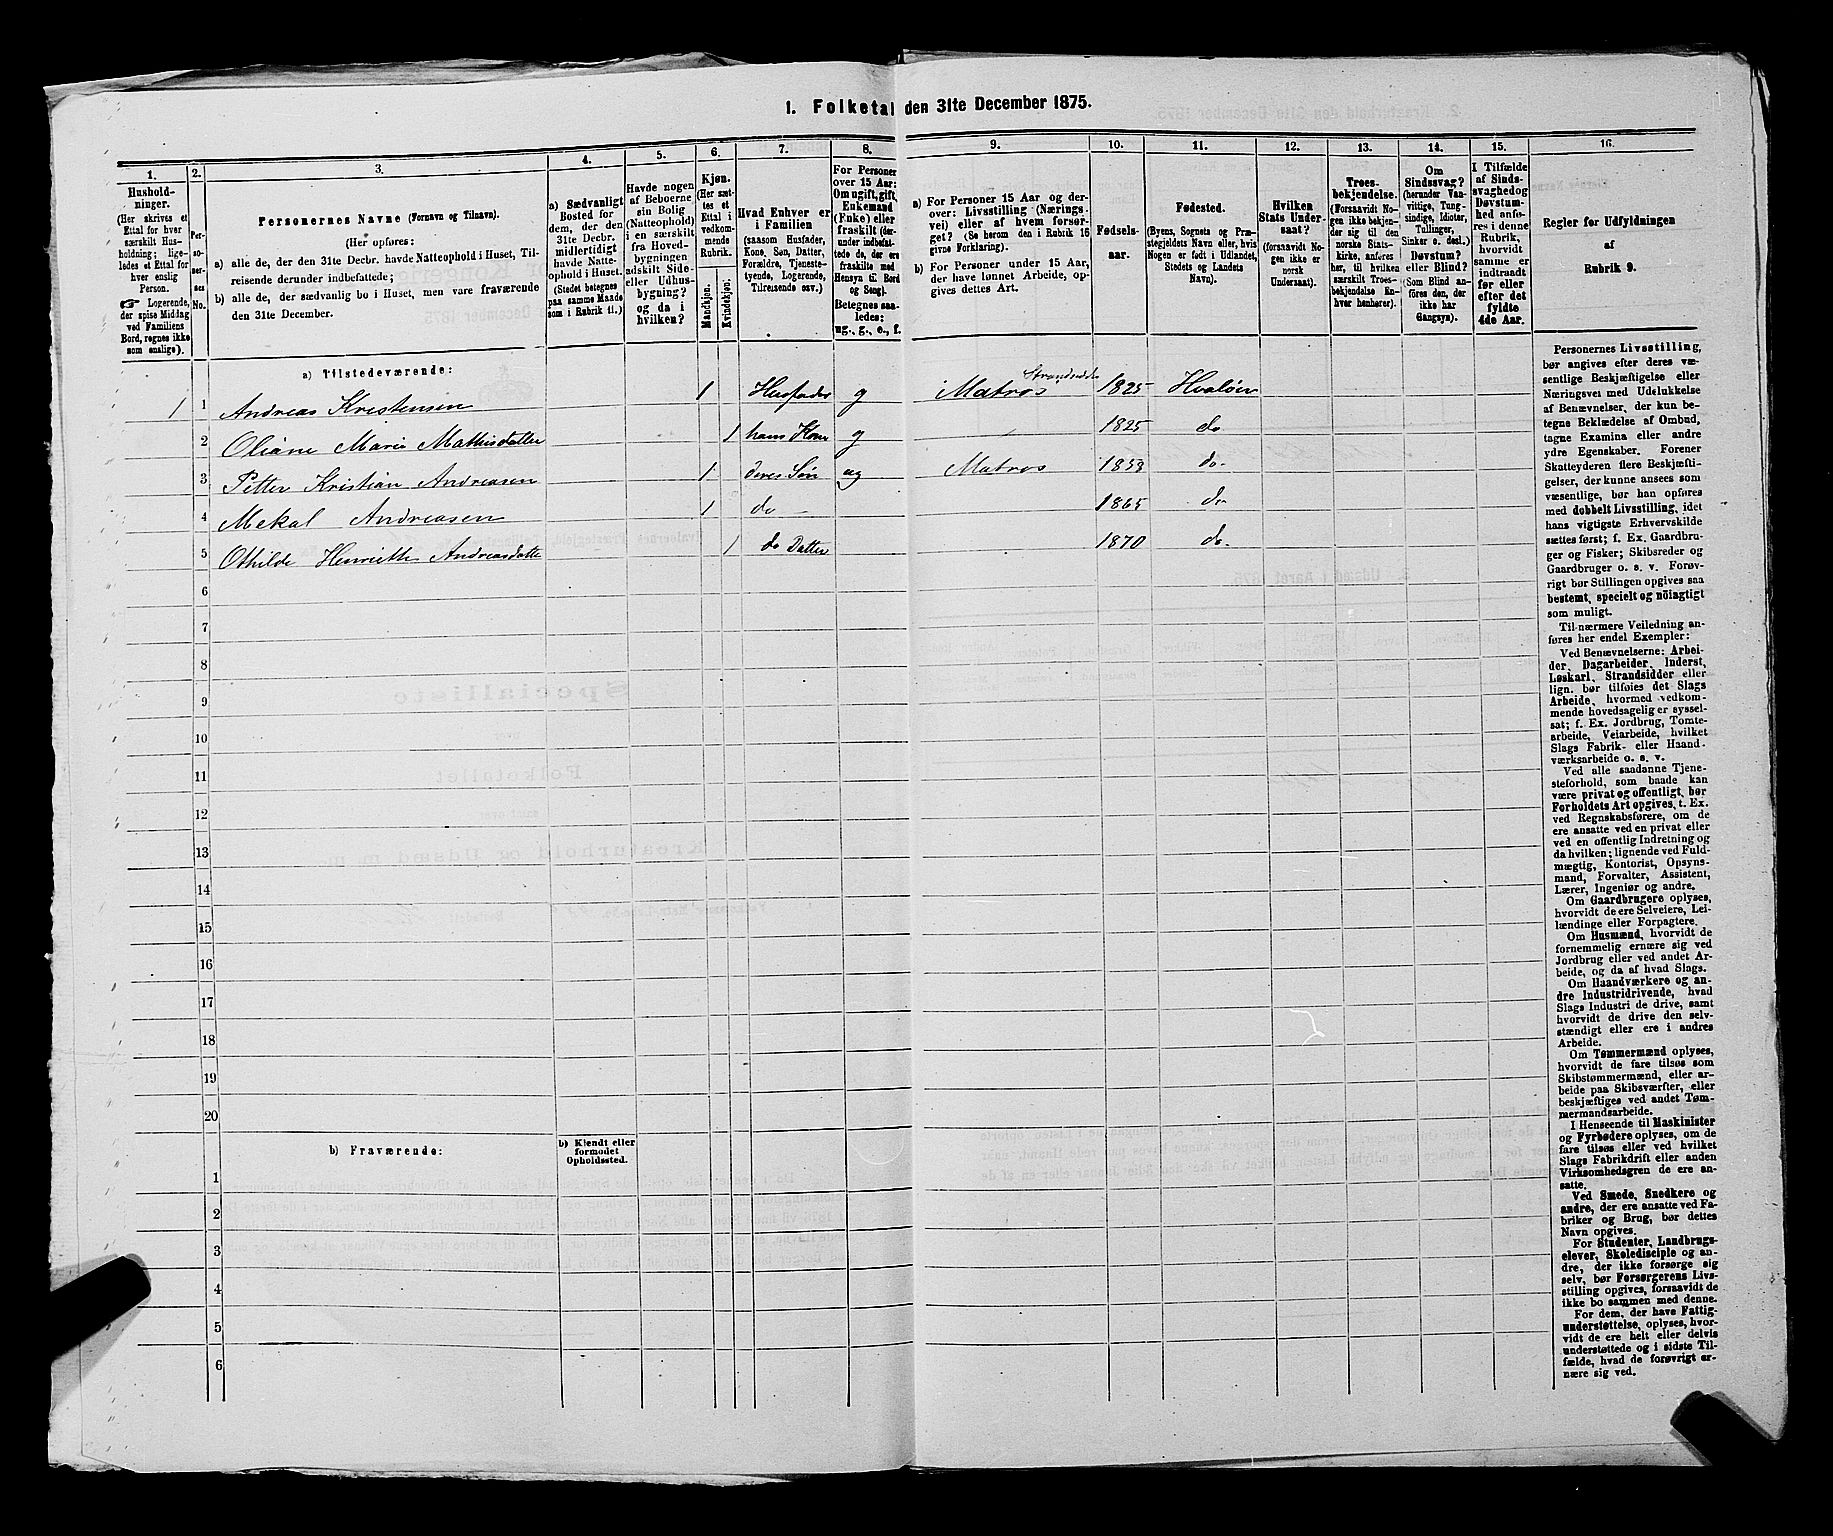 1. Folketal den 31te December 1875.
1.
2.
3.
4.
5.
6.
7.
8.
9.
10.
11.
12.
13.
14.
15.
16.
Hushold-
ninger.
(Her skrives et
Ettal for hver
særskilt Hus-
holdning; lige-
ledes et Ettal for
hver enslig
Person.
☞ Logerende,
der spise Middag
ved Familiens
Bord, regnes ikke
som enslige).
Per-
so-
ner-
nes
No.
Personernes Navne (Fornavn og Tilnavn).
(Her opføres:
a) alle de, der den 31te Decbr. havde Natteophold i Huset, Til-
reisende derunder indbefattede;
b) alle de, der sædvanlig bo i Huset, men vare fraværende
den 31te December.
a) Sædvanligt
Bosted for
dem, der den
31te Decbr.
midlertidigt
havde Natte-
ophold i Huset.
(Stedet betegnes
paa samme Maade
som i Rubrik 11.)
Havde nogen
af Beboerne
sin Bolig
(Natteophold)
i en særskilt
fra Hoved-
bygningen
adskilt Side-
eller Udhus-
bygning?
og da i
hvilken?
Kjøn.
(Her sæt-
tes et
Ettal i
vedkom-
mende
Rubrik.
Mandkjøn.
Kvindekjøn.
Hvad Enhver er
i Familien
(saasom Husfader,
Kone, Søn, Datter,
Forældre, Tjeneste-
tyende, Logerende,
Tilreisende osv.)
For Personer
over 15 Aar:
Om ugift, gift,
Enkemand
(Enke) eller
fraskilt (der-
under indbefat-
tede de, der ere
fraskilte med
Hensyn til Bord
og Seng).
Betegnes saa-
ledes:
ug., g., e., f.
a) For Personer 15 Aar og der-
over: Livsstilling (Nærings-
vei) eller af hvem forsør-
get? (Se herom den i Rubrik 16
givne Forklaring).
b) For Personer under 15 Aar,
der have lønnet Arbeide, op-
gives dettes Art.
Fødsels-
aar.
Fødested.
(Byens, Sognets og Præ-
stegjeldets Navn eller, hvis
Nogen er født i Udlandet,
Stedets og Landets
Navn).
Hvilken
Stats Under-
saat?
(forsaavidt No-
gen ikke er
norsk
Undersaat).
Troes-
bekjendelse.
(Forsaavidt No-
gen ikke bekjen-
der sig til den
norske Stats-
kirke, anføres
her, til hvilken
særskilt Troes-
bekjendelse En-
hver henhører).
Om
Sindssvag?
(herunder Van-
vittige, Tung-
sindige, Idioter,
Tullinger,
Sinker o. desl.)
Døvstum?
eller Blind?
(Som Blind an-
føres den, der
ikke har
Gangsyn).
I Tilfælde
af Sinds-
svaghed og
Døvstum-
hed anfø-
res i denne
Rubrik,
hvorvidt
samme er
indtraadt
før eller
efter det
fyldte
4de Aar.
Regler for Udfyldningen
af
Rubrik 9.
a) Tilstedeværende:
1 1 Andreas Kristensen 1 Husfader g Matros Strandsidder 1825 Hvaløer
2 Oliane Marie Mathisdatter 1 hans Kone g 1825 do
3 Petter Kristian Andreasen 1 deres Søn ug Matros 1853 do
4 Mekal Andreasen 1 do 1865 do
5 Othilde Henriette Andreasdatte 1 do Datter 1870 do
6
7
8
9
10
11
12
13
14
15
16
17
18
19
20
b) Fraværende:
b) Kjendt eller
formodet
Opholdssted.
1
2
3
4
5
6
Personernes Livsstilling,
bør angives efter deres væ-
sentlige Beskjæftigelse eller
Næringsvei med Udelukkelse
af Benævnelser, der kun be-
tegne Beklædelse af Ombud,
tagne Examina eller andre
ydre Egenskaber. Forener
Skatteyderen flere Beskjæfti-
gelser, der kunne ansees som
væsentlige, bør han opføres
med dobbelt Livsstilling, idet
hans vigtigste Erhvervskilde
sættes først; f. Ex. Gaardbru-
ger og Fisker; Skibsreder og
Gaardbruger o. s. v. Forøv-
rigt bør Stillingen opgives saa
bestemt, specielt og nöiagtigt
som muligt.
Til nærmere Veiledning an-
føres her endel Exempler:
Ved Benævnelserne: Arbei-
der, Dagarbeider, Inderst,
Løskarl, Strandsidder eller
lign. bør tilføies det Slags
Arbeide, hvormed vedkom-
mende hovedsagelig er syssel-
sat; f. Ex. Jordbrug, Tomte-
arbeide, Veiarbeide, hvilket
Slags Fabrik- eller Haand-
værksarbeide o. s. v.
Ved alle saadanne Tjene-
steforhold, som baade kan
være privat og offentligt, bør
Forholdets Art opgives, t. Ex.
ved Regnskabsførere, om de
ere ansatte ved en privat eller
ved en offentlig Indretning og
da hvilken; lignende ved Fuld-
mægtig, Kontorist, Opsyns-
mand, Forvalter, Assistent,
Lærer, Ingeniør og andre.
Om Gaardbrugere oplyses,
hvorvidt de ere Selveiere, Lei-
lændinge eller Forpagtere.
Om Husmænd, hvorvidt de
fornemmelig ernære sig ved
Jordbrug eller ved andet Ar-
beide, og da af hvad Slags.
Om Haandværkere og an-
dre Industridrivende, hvad
Slags Industri de drive, samt
hvorvidt de drive den selv-
stændigt eller ere i andres
Arbeide.
Om Tømmermænd oplyses,
hvorvidt de fare tilsøs som
Skibstømmermænd, eller ar-
beide paa Skibsværfter, eller
beskjæftiges ved andet Tøm-
mermandsarbeide.
I Henseende til Maskinister
og Fyrbødere oplyses, om de
fare tilsøs eller ved hvilket
Slags Fabrikdrift eller anden
Virksomhedsgren de ere an-
satte.
Ved Smede, Snedkere og
andre, der ere ansatte ved Fa-
briker og Brug, bør dettes
Navn opgives.
For Studenter, Landbrugs-
elever, Skoledisciple og an-
dre, der ikke forsørge sig
selv, bør Forsørgerens Livs-
stilling opgives, forsaavidt de
ikke bo sammen med denne.
For dem, der have Fattig-
understøttelse, oplyses, hvor-
vidt de ere helt eller delvis
understøttede og i sidste Til-
fælde, hvad de forøvrigt er-
nære sig ved.